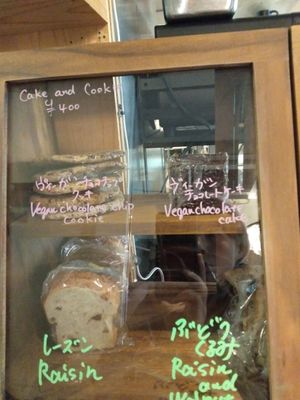 Cake and Cookie
¥400
ヴィーガンチョコチップ
クッキー
Vegan chocolate chip
cookie
ヴィーガン
チョコレートケーキ
Vegan chocolate
cake
レーズン
Raisin
ぶどう
くるみ
Raisin
and
Walnut